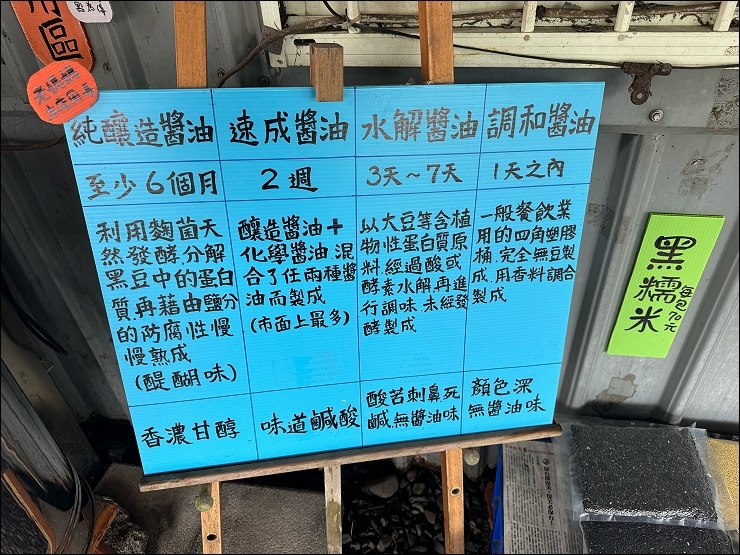 用區
純釀造醬油
至少6個月
利用麴菌天
然發酵分解
黑豆中的蛋白
質,再藉由鹽分
的防腐性慢
慢熟成
(醍醐味)
香濃甘醇
速成醬油
2週
釀造醬油+
化學醬油,混
合了任兩種醬
油而製成
(市面上最多)
味道鹹酸
水解醬油
3天~7天
以大豆等含植
物性蛋白質原
料,經過酸或
酵素水解,再進
行調味,未經發
酵製成
酸苦刺鼻死
鹹,無醬油味
調和醬油
1天之內
一般餐飲業
用的四角塑膠
桶,完全無豆製
成,用香料調合
製成
顏色深
無醬油味
黑糯米
每包70元